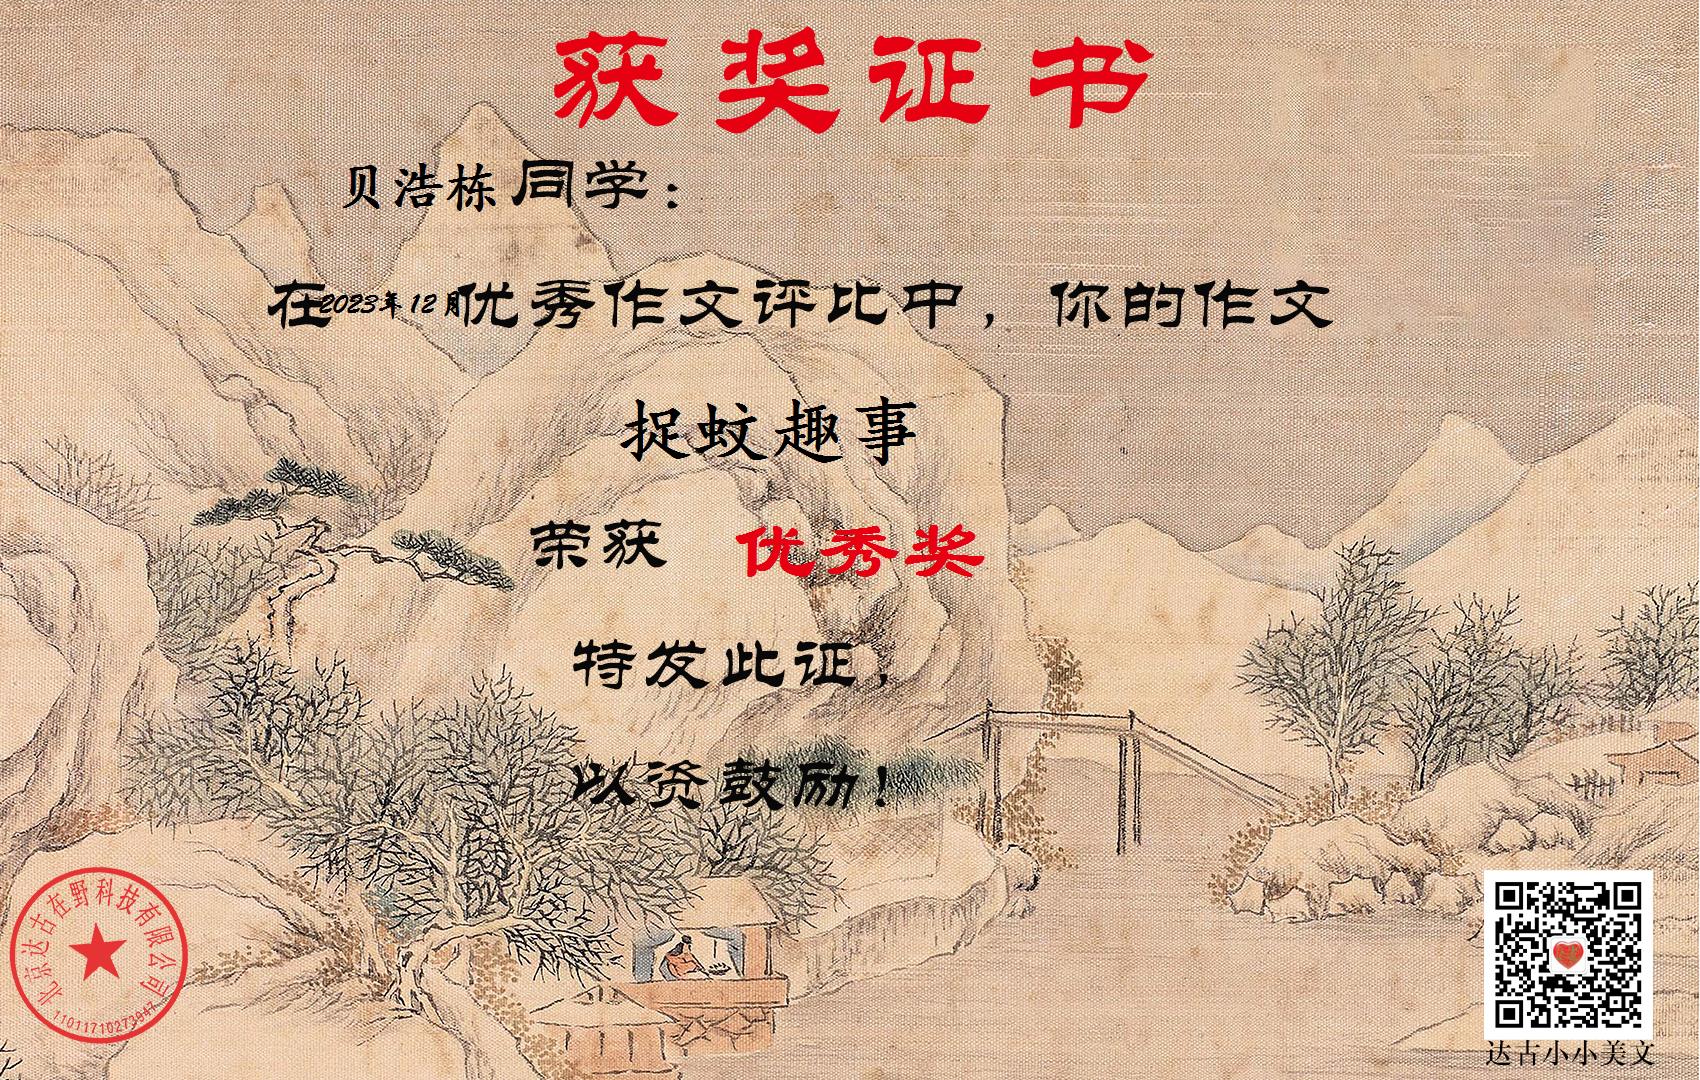 获奖证书
贝浩栋同学：
在2023年12月优秀作文评比中，你的作文
捉蚊趣事
荣获 优秀奖
特发此证，
以资鼓励！
北京达古在野科技有限公司
11011710273947
达古小小美文